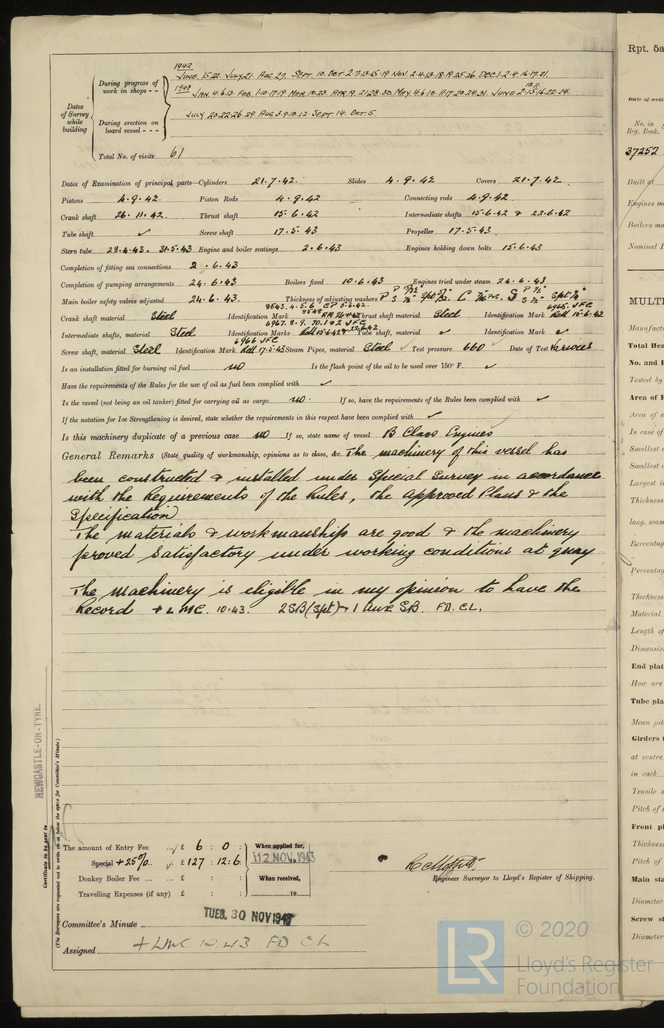 1942
During progress of work in shops - - June. 15. 22. July 21. Aug 27. Sept. 10. Oct 2. 7. 13. 15. 19. Nov. 2. 4. 13. 18. 19. 25. 26. Dec 1. 2. 4. 16. 17. 21.
1943 Jan. 4. 6. 13. Feb. 1. 10. 17. 19 Mar. 10. 23. Apr. 9. 21. 28. 30. May. 4. 6. 10. 11. 17. 20. 24. 31. June 2. 10. 11. 15. 16. 22. 24.
Dates of Survey while building
During erection on board vessel - - - July 20. 22. 26. 29. Aug 3. 9. 10. 12. Sept. 14. Oct. 5.
Total No. of visits 61
Dates of Examination of principal parts—Cylinders 21.7.42. Slides 4.9.42 Covers 21.7.42
Pistons 4.9.42. Piston Rods 4.9.42 Connecting rods 4.9.42
Crank shaft 26.11.42. Thrust shaft 15.6.42 Intermediate shafts 15.6.42 & 22.6.42
Tube shaft ✓ Screw shaft 17.5.43 Propeller 17.5.43
Stern tube 28.4.43. 31.5.43 Engine and boiler seatings 2.6.43 Engines holding down bolts 15.6.43
Completion of fitting sea connections 2.6.43
Completion of pumping arrangements 24.6.43 Boilers fixed 10.6.43 Engines tried under steam 24.6.43
Main boiler safety valves adjusted 24.6.43. Thickness of adjusting washers
Crank shaft material Steel Identification Mark Thrust shaft material Steel Identification Mark
Intermediate shafts, material Steel Identification Marks Tube shaft, material ✓ Identification Mark ✓
Screw shaft, material Steel Identification Mark 17.5.43 Steam Pipes, material Steel ✓ Test pressure 660 Date of Test Various
Is an installation fitted for burning oil fuel no Is the flash point of the oil to be used over 150° F. ✓
Have the requirements of the Rules for the use of oil as fuel been complied with ✓
Is the vessel (not being an oil tanker) fitted for carrying oil as cargo no. If so, have the requirements of the Rules been complied with ✓
If the notation for Ice Strengthening is desired, state whether the requirements in this respect have been complied with ✓
Is this machinery duplicate of a previous case no If so, state name of vessel B Class Engines
General Remarks (State quality of workmanship, opinions as to class, &c. The machinery of this vessel has
been constructed & installed under Special Survey in accordance
with the Requirements of the Rules, the approved Plans & the
Specification
The materials & workmanship are good & the machinery
proved satisfactory under working conditions at quay
The machinery is eligible in my opinion to have the
Record + LMC. 10.43. 2SB (Spt) & 1 Aux SB. FD. CL.
NEWCASTLE-ON-TYNE.
Certificate to be sent to
(The Surveyors are requested not to write on or below the space for Committee's Minute.)
The amount of Entry Fee ... £ 6 : 0 : When applied for,
Special +25% ... £ 127 : 12 : 6 12 NOV 1943
Donkey Boiler Fee ... ... £ : : When received,
Travelling Expenses (if any) £ : : 19
Engineer Surveyor to Lloyd's Register of Shipping.
Committee's Minute TUES. 30 NOV 1943
Assigned + LMC 10.43 FD CL
Rpt. 5a
Date of
No. in
Reg. Book.
37252
Built at
Engines
Boilers
Nominal
MULT
Manufact
Total Hea
No. and
Tested by
Area of
Area of
In case of
Smallest
Smallest
Largest
Thickness
long. seam
Percentag
Percentag
Thickness
Material
Length of
Dimensio
End plat
How are
Tube pla
Mean pit
Girders
at centre
in each
Tensile
Pitch of
Front pl
Thickness
Pitch of
Main sta
Diameter
Screw st
Diameter
LR
© 2020
Lloyd's Register
Foundation